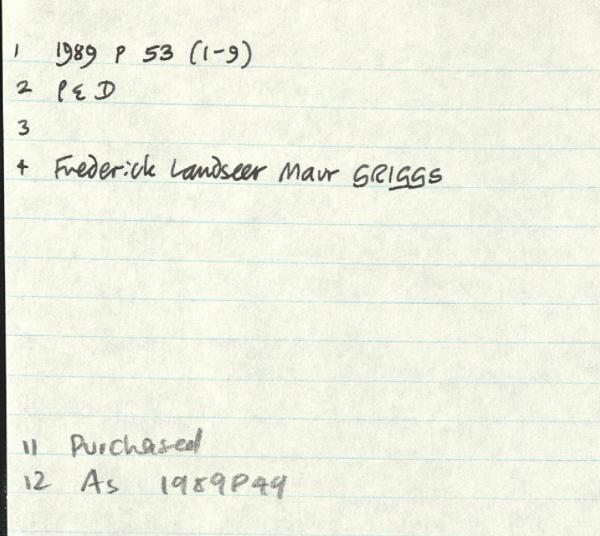 1 1989 P 53 (1-9)
2 P & D
3
4 Frederick Landseer Maur GRIGGS
11 Purchased
12 As 1989P49